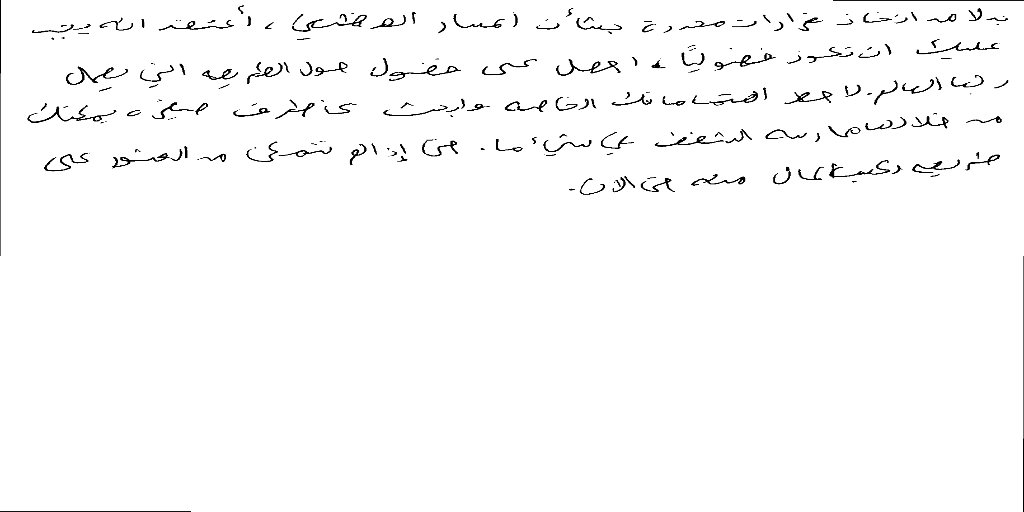 بدلا من اتخاذ قرارات محددة بشأن المسار الوظيفي، أعتقد انه يجب
عليك ان تكون فضوليًا، احصل على فضول حول الطريقة التي يعمل
بها العالم. لاحظ اهتماماتك الخاصة وابحث عن طرف صغيرة يمكنك
من خلالها ممارسة الشغف في شيء ما. حتى إذا لم تتمكن من العثور على
طريقة لكسب المال منه حتى الان.